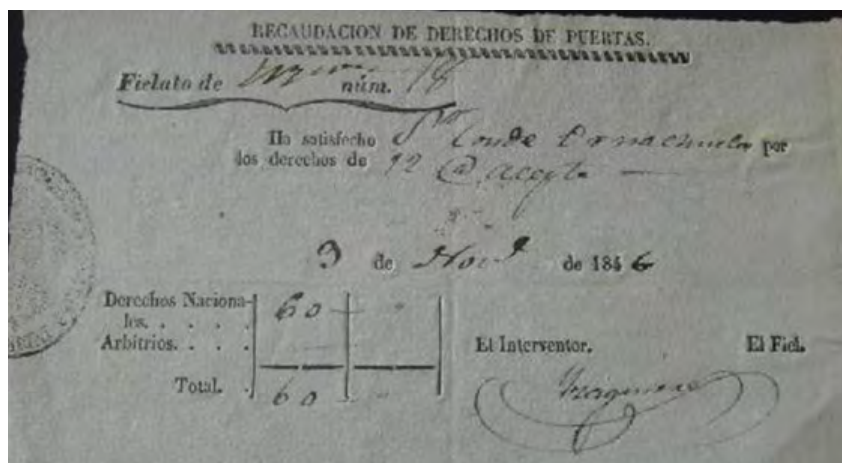 RECAUDACION DE DERECHOS DE PUERTAS.
Fielato de núm. 18
Ha satisfecho Sr Conde por
los derechos de 12 @ aceyte
3 de Nove de 1846
Derechos Naciona-
les. . . . . 60
Arbitrios. . . .
El Interventor. El Fiel.
Total. . 60